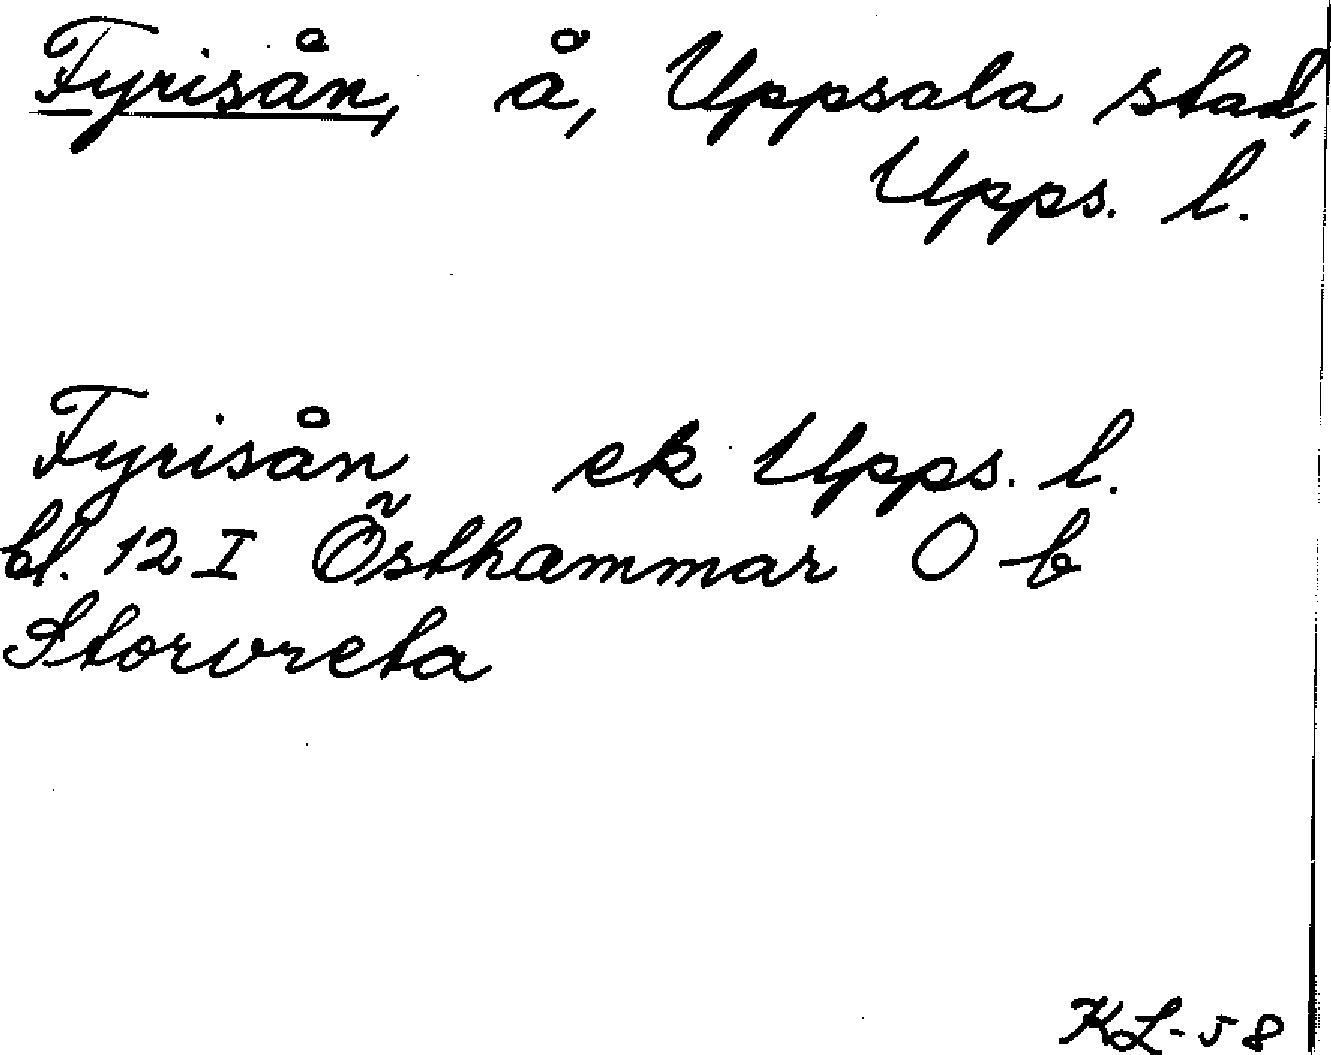 Fyrisån, å, Uppsala stad,
Upps. l.
Fyrisån ek Upps. l.
bl. 12 I Östhammar O b
Storvreta
KL-58